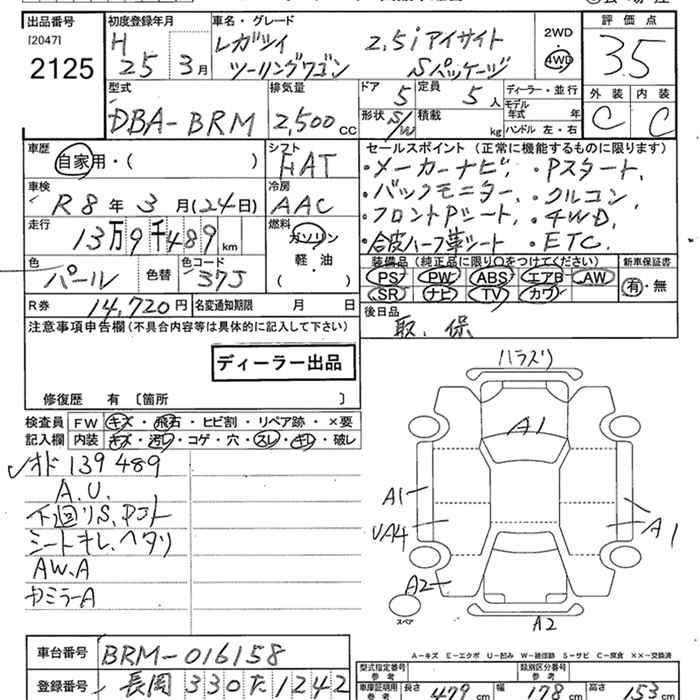 出品番号 初度登録年月 車名・グレード 評価点
[2047] H レガシィ 2.5iアイサイト 2WD
2125 25 3月 ツーリングワゴン Sパッケージ 4WD 3.5
型式 排気量 ドア 5 定員 5人 ディーラー・並行 外装 内装
DBA-BRM 2,500cc 形状 S/W 積載 kg モデル年式 年 C C
ハンドル 左・右
車歴 シフト セールスポイント (正常に機能するものに限ります)
自家用・( ) FAT ・メーカーナビ, ・Pスタート,
車検 冷房 ・バックモニター, ・クルコン,
R8年3月(24日) AAC ・フロントPシート, ・4WD,
走行 燃料 ・合皮ハーフ革シート ・ETC,
13万9千489km ガソリン
軽・油
( )
色 パール 色替 色コード 37J 装備品 (純正品に限り○をつけてください) 新車保証書
PS PW ABS エアB AW 有・無
SR ナビ TV カワ
R券 14,720円 名変通知期限 月 日 後日品
取、保
注意事項申告欄(不具合内容等は具体的に記入して下さい)
ディーラー出品
修復歴 有 〔箇所 〕
検査員 FW キズ・飛石・ヒビ割・リペア跡・×要
記入欄 内装 キズ・汚レ・コゲ・穴・スレ・キレ・破レ
オド 139489
A.U.
下回りS,
シートキレ、ヘタリ
AW.A
カミラーA
ハラスリ
A1
A1
UA4 A1
A2
スペア A2
A-キズ E-エクボ U-凹み W-補修跡 S-サビ C-腐食 ××-交換済
車台番号 BRM-016158 型式指定番号 参考 類別区分番号 参考
登録番号 長岡 330 た 1242 車庫証明用 参考 長さ 479cm 幅 178cm 高さ 153cm